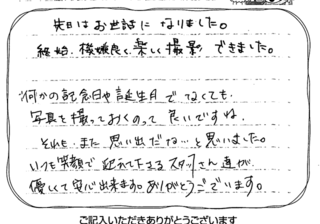 先日はお世話になりました。
終始、機嫌良く楽しく撮影できました。
何かの記念日や誕生月でなくても、
写真を撮っておくのって良いですね。
それも、また思い出だな…と思いました。
いつも笑顔で迎えて下さるスタッフさん達が、
優しくて安心出来ます。ありがとうございます。
ご記入いただきありがとうございます